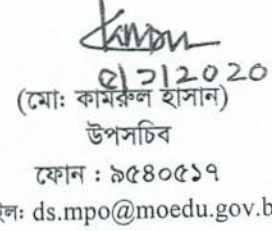 ০১/১/২০২০
(মোঃ কামরুল হাসান)
উপসচিব
ফোন : ৯৫৪০৫১৭
ইলঃ ds.mpo@moedu.gov.b